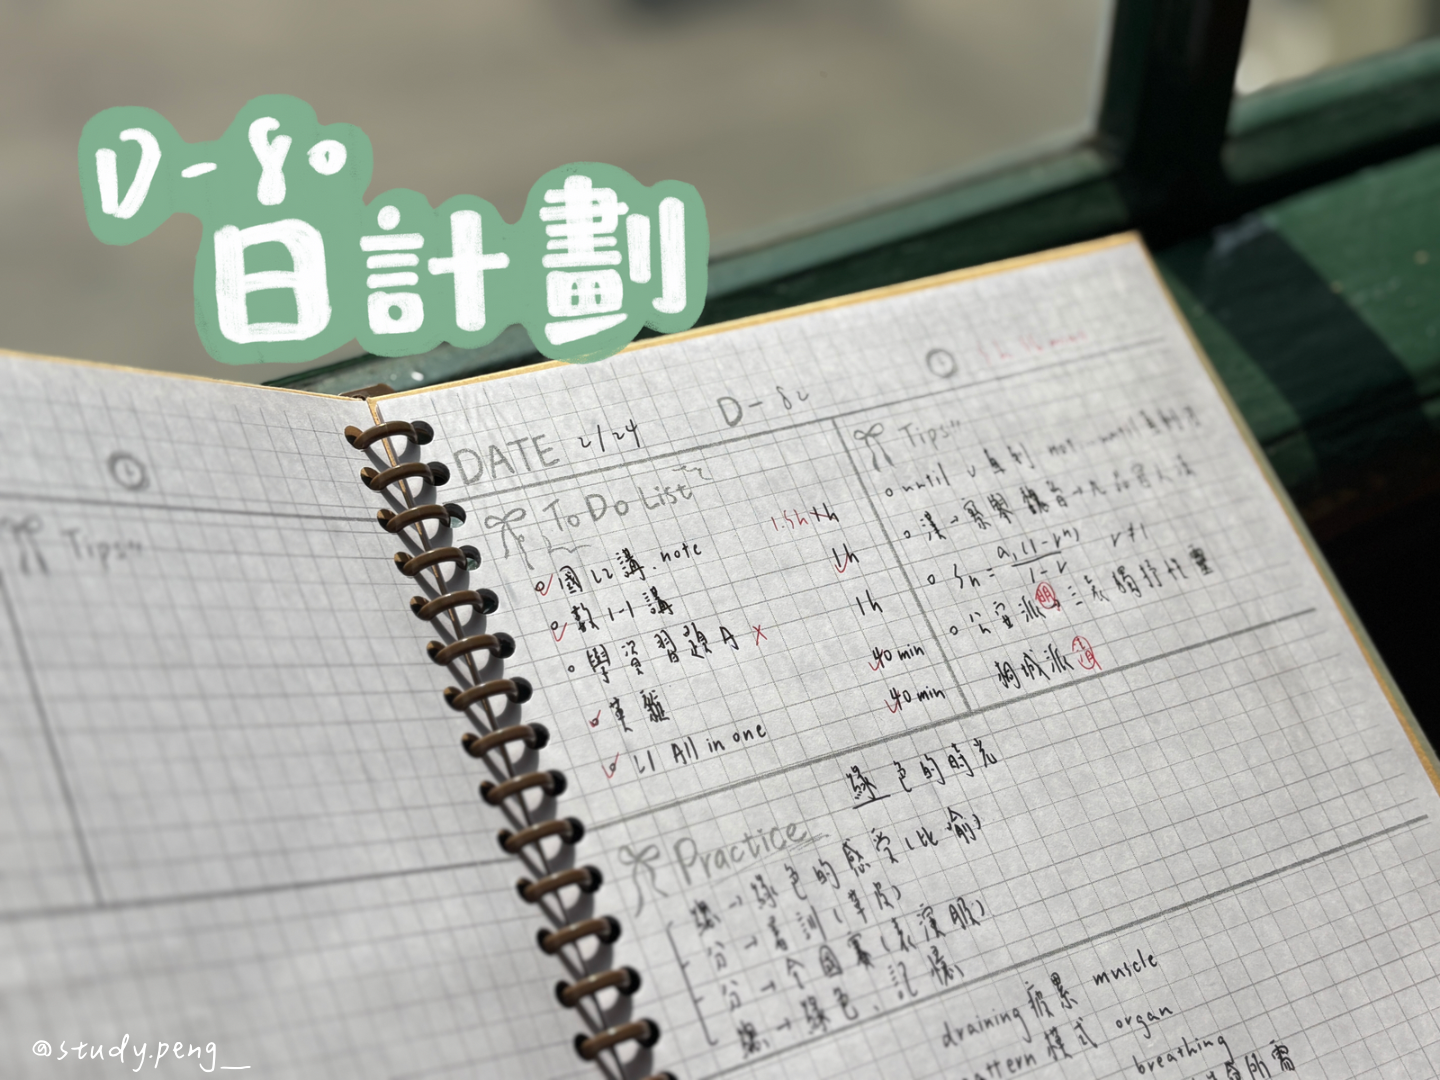 D-80
日計劃
Tips
DATE 2/24
D-80
To Do List
國 L2 講.note 1.5h
數 1-1 講 1h
學資習題A × 1h
英雜 40 min
L1 All in one 40 min
Tips
until 直到 not until 直到才
Sn = a1(1-r^n)/1-r r≠1
公安派 明 三袁 獨抒性靈
桐城派 清
Practice
綠色的時光
總→綠色的感受(比喻)
分→善訓(草皮)
分→全國賽(表演服)
總→綠色、記憶
draining 疲累 muscle
pattern 模式 organ
breathing
@study.peng_